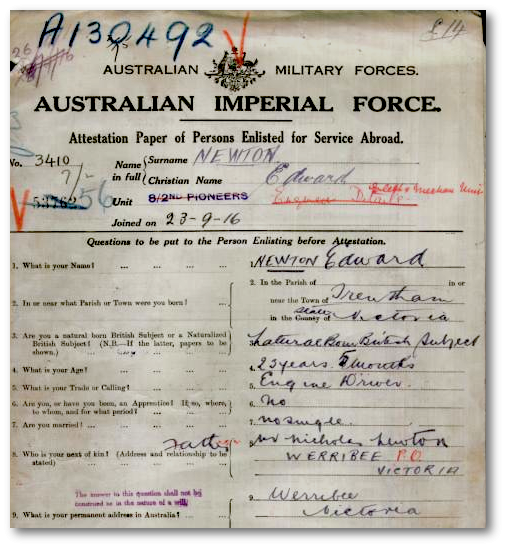 A130492 £14
26
AUSTRALIAN MILITARY FORCES.
AUSTRALIAN IMPERIAL FORCE.
Attestation Paper of Persons Enlisted for Service Abroad.
No. 3410 Name in full Surname NEWTON
Christian Name Edward
53762 56 Unit 8/2ND PIONEERS
Joined on 23-9-16
Questions to be put to the Person Enlisting before Attestation.
1. What is your Name? ... ... ... ... 1. NEWTON Edward
2. In or near what Parish or Town were you born? ... 2. In the Parish of in or
near the Town of Trentham
in the County of State Victoria
3. Are you a natural born British Subject or a Naturalized
British Subject? (N.B.—If the latter, papers to be
shown.) 3. Natural Born British Subject
4. What is your Age? ... ... ... ... 4. 23 years 5 months
5. What is your Trade or Calling? ... ... ... 5. Engine Driver.
6. Are you, or have you been, an Apprentice? If so, where,
to whom, and for what period? ... ... 6. No
7. Are you married? ... ... ... ... 7. no single
8. Who is your next of kin? (Address and relationship to be
stated) ... ... Father 8. Mr Nicholas Newton
WERRIBEE P.O
VICTORIA
The answer to this question shall not be
construed as in the nature of a will.
9. What is your permanent address in Australia? ... ... 9. Werribee
Victoria